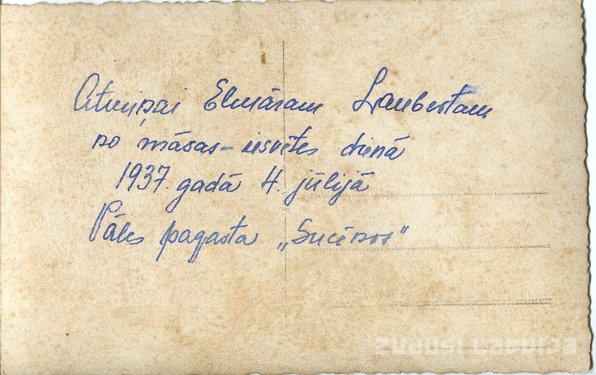 Atmiņai Elmāram Laubertam
no māsas – iesvētes dienā
1937. gadā 4. jūlijā
Pāles pagasta „Sucēnos"